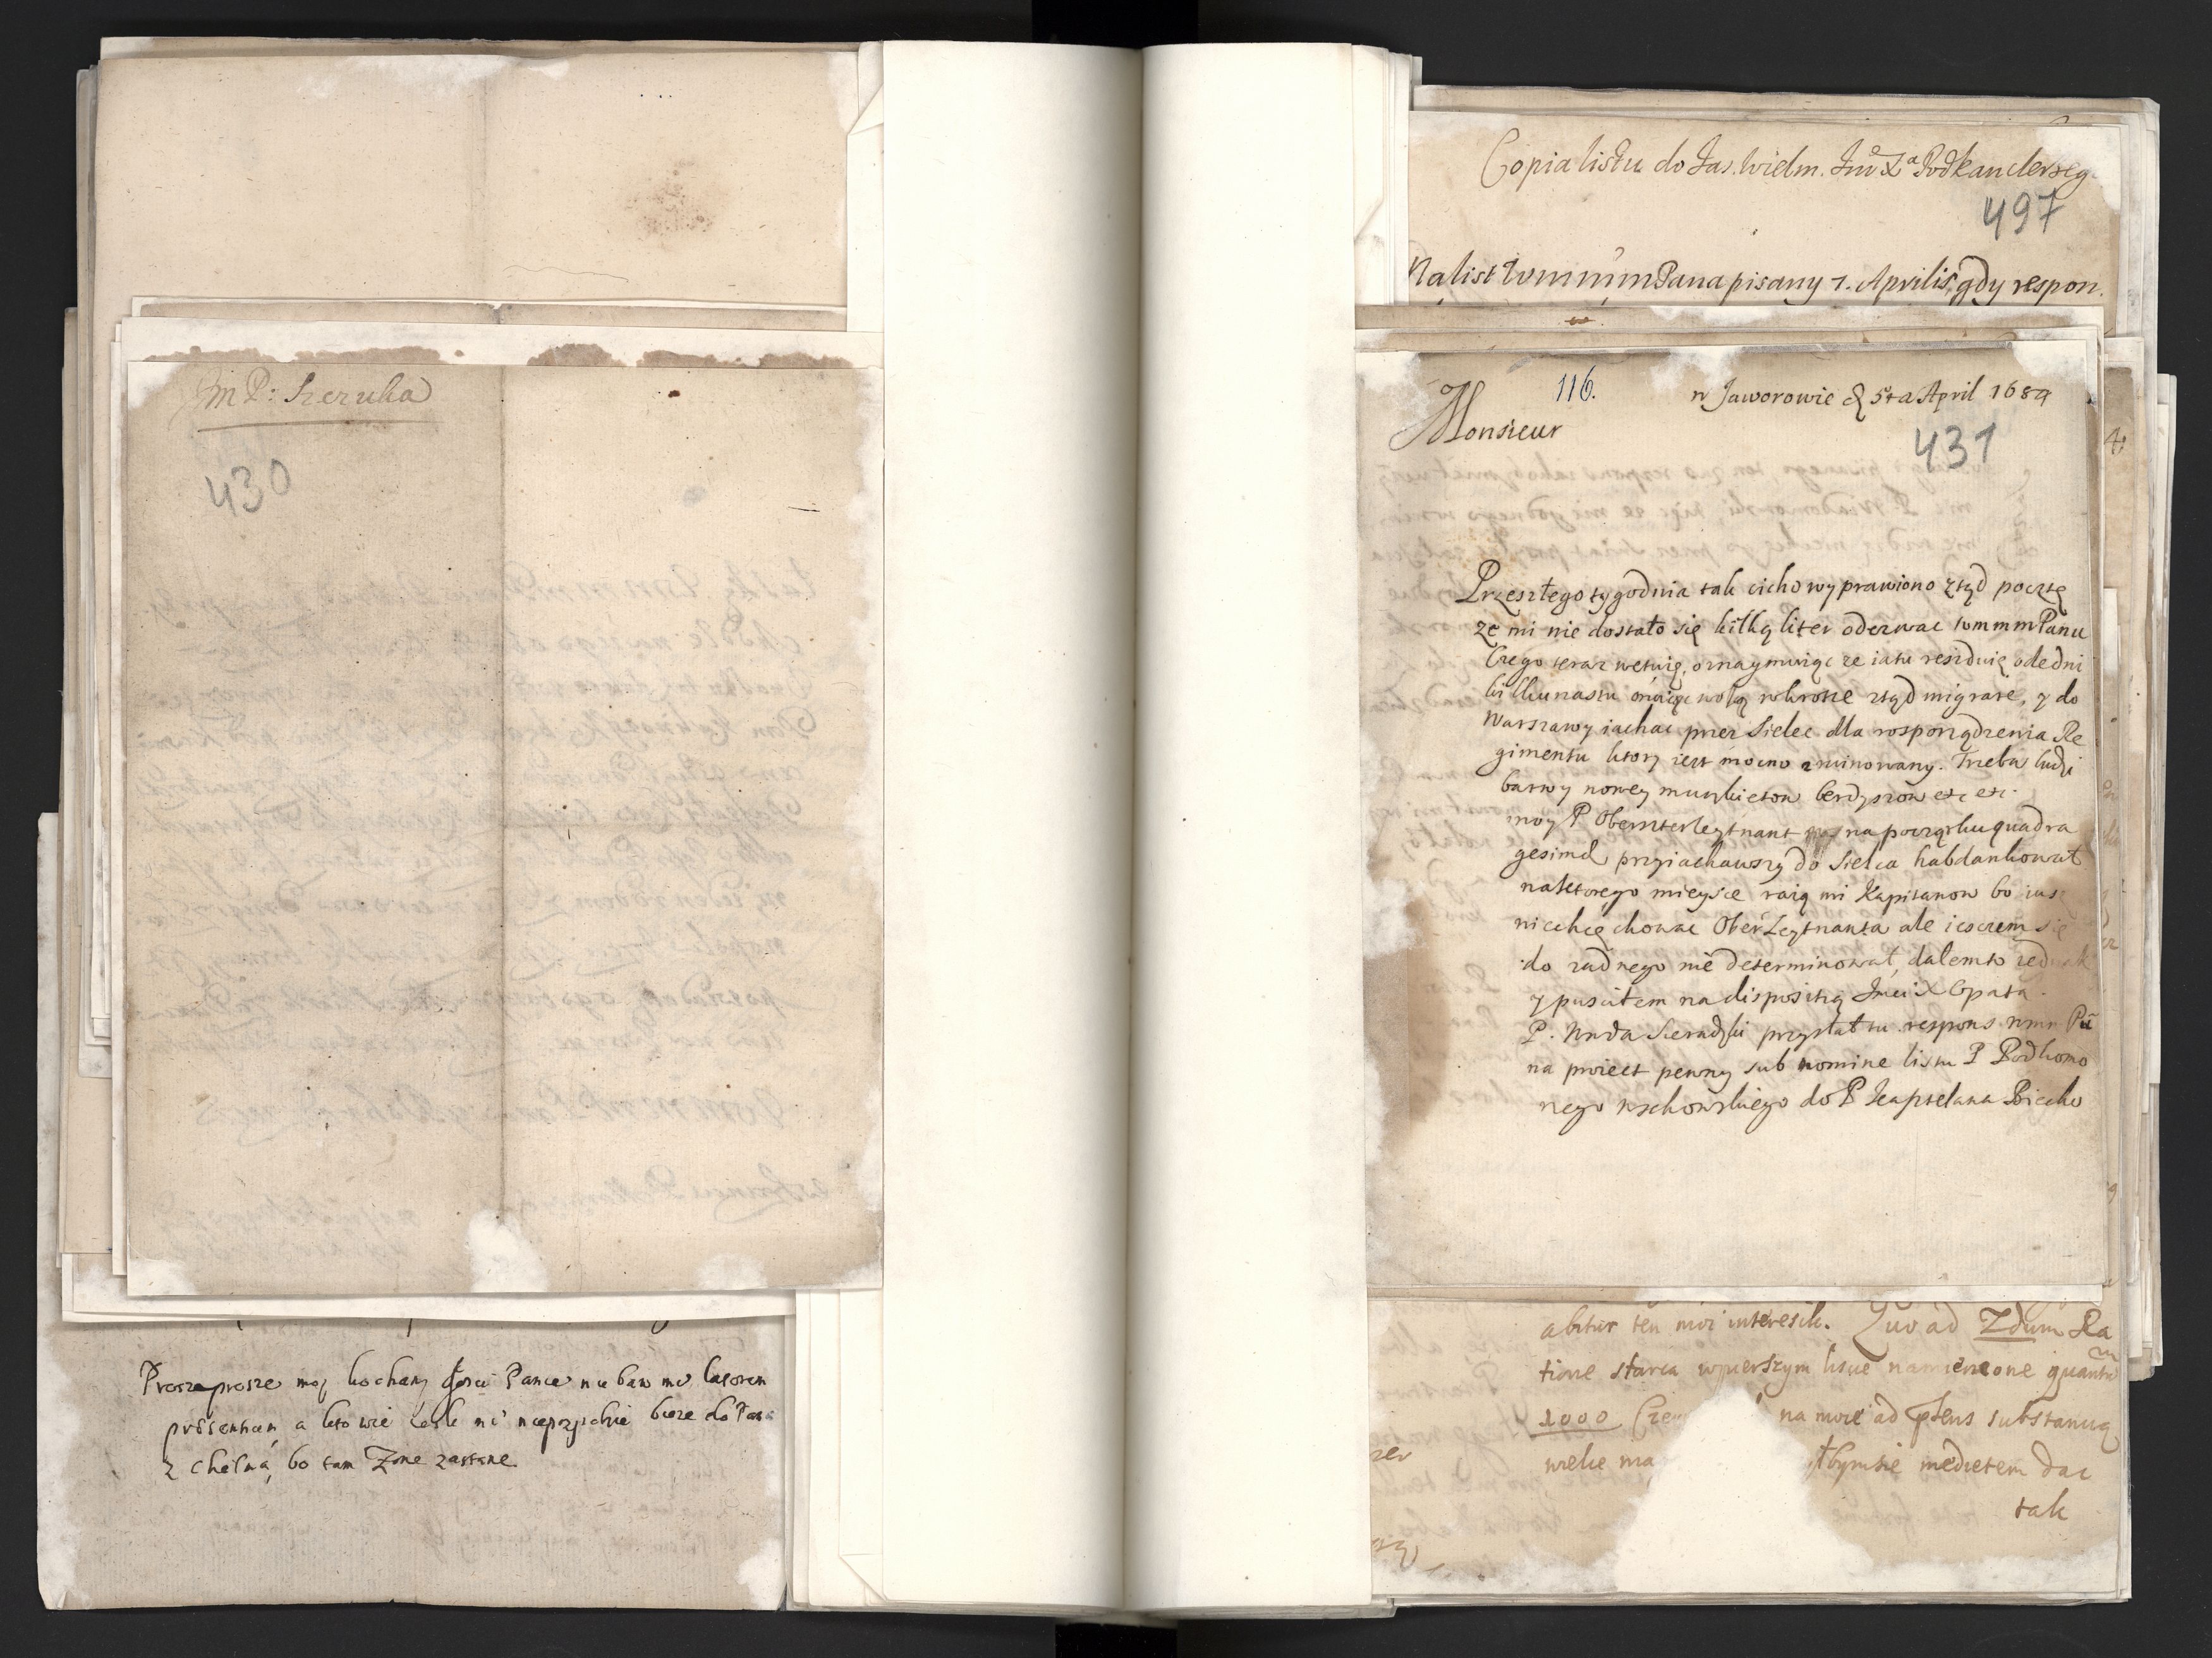 Jm P: Szczuka
430
Proszeprosze moy kochany
a kto wie
z Chełna, bo tam Zone zastane.
Copia listu do Jas. Wielm. Jmć Xa Podkanclerzeg
497
Na list WmmmPana pisany 1. Aprilis, gdy respon.
116.
w Jaworowie d 5ta April 1689
Monsieur
431
Przeszłego tygodnia tak cicho wyprawiono ztąd pocztę
że mi nie dostało się kilką liter odezwac wmmmPanu
Czego teraz wetuię, oznaymuiąc że ia tu residuię ode dni
kilkunastu maiąc wolą wkrotce ztąd migrare, y do
Warszawy iachac przez Sielec dla rosporządzenia Re
gimentu ktory iest mocno zruinowany. Trzeba ludzi
barwy nowey muszkietow berdyszow etc etc.
moy P Obersterleytnant na początku quadra
gesimæ przyiachawszy do Sielca habdankował
na ktorego mieysce raią mi Kapitanow bo iusz
niechcę chowac OberLeytnanta ale ieszczem się
do zadnego nie determinował, dałem to iednak
y pusciłem na dispositią Jmci X Opata.
P. Wrda Sieradzki przysłał tu respons wmm Pū
na proiect pewny sub nomine listu P Podkomo
rego wschowskiego do P Kasztelana Biecko
abitur ten moi interesik. Quo ad Zdum Ra
tione starca w pierszym liscie namienione quantum
1000 na moie ad præsens substantią
wielie dac
tak